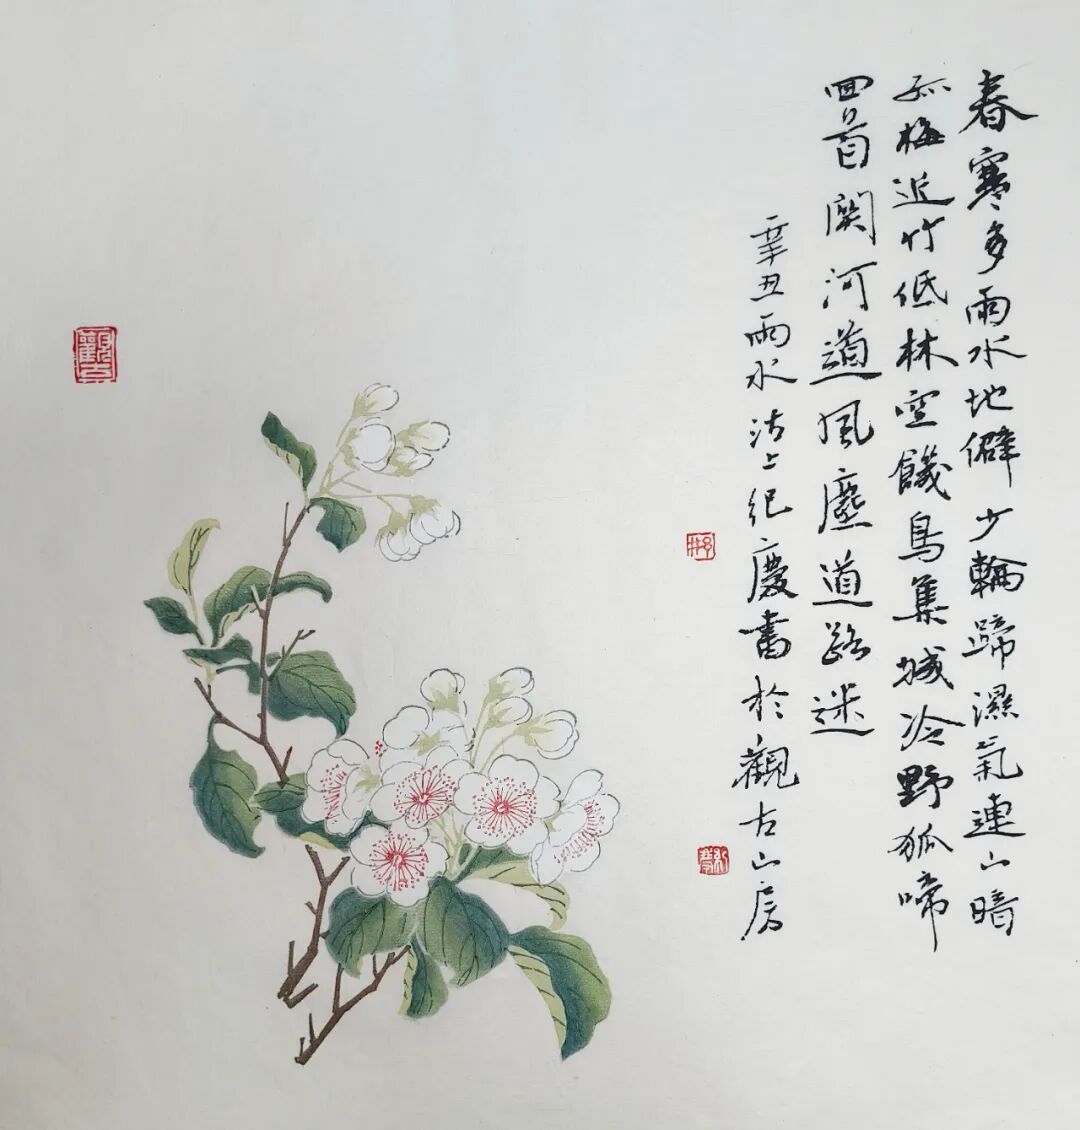 春寒多雨水地僻少輪蹄濕氣連山暗
孤梅近竹低林空饑鳥集城冷野狐啼
回首関河道風塵道路迷
辛丑雨水沽上纪慶書於觀古山房